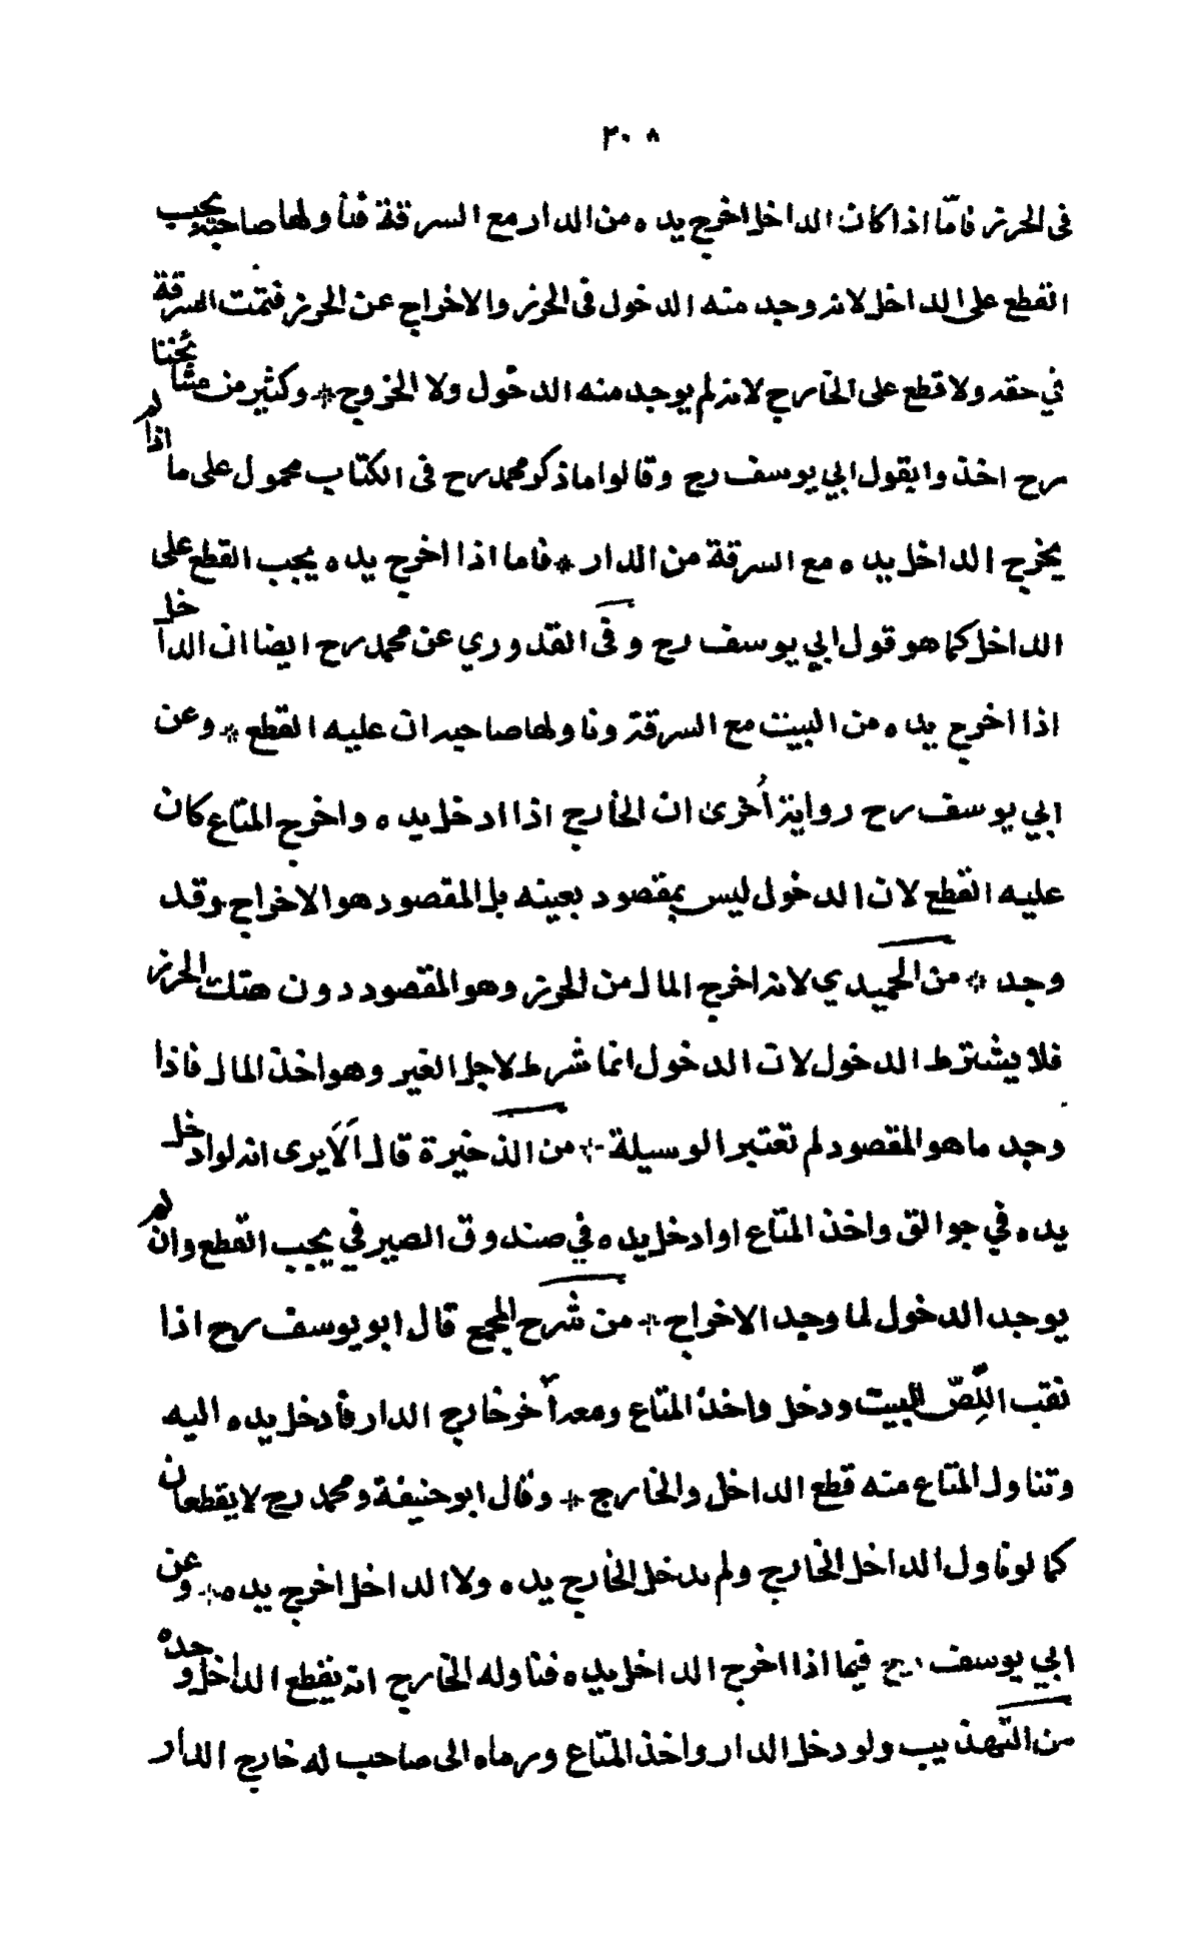 ٢٠٨
فى الحرز فامّا اذا كان الداخل اخرج يده من الدار مع السرقة فنا ولها صاحبه يجب
القطع على الداخل لانه وجد منه الدخول فى الحرز والاخراج عن الحرز فتمّت السرقة
في حقه ولا قطع على الخارج لانه لم يوجد منه الدخول ولا الخروج * وكثير من مشائخنا
رح اخذوا بقول ابي يوسف رح وقالوا ما ذكر محمد رح فى الكتاب محمول على ما اذا لم
يخرج الداخل يده مع السرقة من الدار * فاما اذا اخرج يده يجب القطع على
الداخل كما هو قول ابي يوسف رح وفى القدوري عن محمد رح ايضا ان الداخل
اذا اخرج يده من البيت مع السرقة وناولها صاحبه ان عليه القطع * وعن
ابي يوسف رح رواية أخرى ان الخارج اذا ادخل يده واخرج المتاع كان
عليه القطع لان الدخول ليس بمقصود بعينه بل المقصود هو الاخراج وقد
وجد * من الحميدي لانه اخرج المال من الحرز وهو المقصود دون هتك الحرز
فلا يشترط الدخول لان الدخول انما شرط لاجل الغير وهو اخذ المال فاذا
وجد ما هو المقصود لم تعتبر الوسيلة * من الذخيرة قال اَلَا يرى انه لو ادخل
يده في جوالق واخذ المتاع او ادخل يده في صندوق الصيرفي يجب القطع وان لم
يوجد الدخول لما وجد الاخراج * من شرح المجمع قال ابو يوسف رح اذا
نقب اللِّصّ البيت ودخل واخذ المتاع ومعه آخر خارج الدار فأدخل يده اليه
وتناول المتاع منه قطع الداخل والخارج * وقال ابو حنيفة ومحمد رح لا يقطعان
كما لو ناول الداخل الخارج ولم يدخل الخارج يده ولا الداخل اخرج يده * وعن
ابي يوسف رح فيما اذا اخرج الداخل يده فناوله الخارج انه يقطع الداخل وحده
من التهذيب ولو دخل الدار واخذ المتاع ورماه الى صاحب له خارج الدار